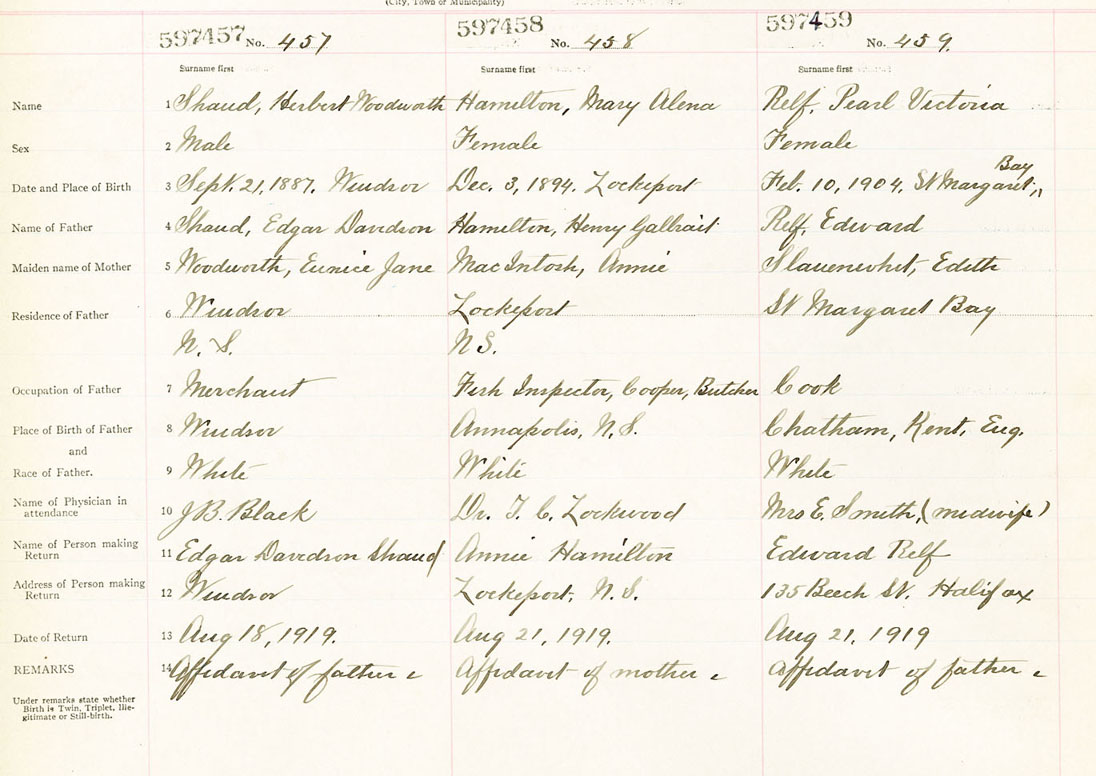 (City, Town or Municipality)
597457 No. 457 597458 No. 458 597459 No. 459.
Surname first Surname first Surname first
Name 1 Shaud, Herbert Woodworth Hamilton, Mary Alena Relf, Pearl Victoria
Sex 2 Male Female Female
Bay
Date and Place of Birth 3 Sept. 21, 1887. Windsor Dec. 3, 1894. Lockeport Feb. 10, 1904. St Margaret,,
Name of Father 4 Shaud, Edgar Davidson Hamilton, Henry Galbrait Relf, Edward
Maiden name of Mother 5 Woodworth, Eunice Jane MacIntosh, Annie Slauenwhit, Edith
Residence of Father 6 Windsor Lockeport St Margaret Bay
N. S. N S.
Occupation of Father 7 Merchant Fish Inspector, Cooper, Butcher Cook
Place of Birth of Father 8 Windsor Annapolis, N.S. Chatham, Kent, Eng.
and
Race of Father. 9 White White White
Name of Physician in
attendance 10 J B. Black Dr. T. C. Lockwood Mrs E. Smith, (midwife)
Name of Person making
Return 11 Edgar Davidson Shaud Annie Hamilton Edward Relf
Address of Person making
Return 12 Windsor Lockeport, N.S. 135 Beech St. Halifax
Date of Return 13 Aug 18, 1919. Aug 21, 1919. Aug 21, 1919
REMARKS 14 Affidavit of father Affidavit of mother Affidavit of father
Under remarks state whether
Birth is Twin, Triplet, Ille-
gitimate or Still-birth.